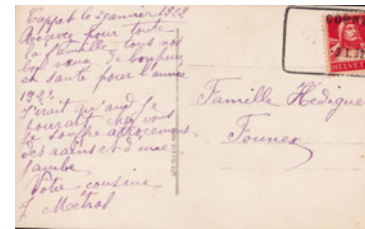 Coppet le 2 janvier 1922
Recevez pour toute
la famille tous nos
bons vœux de bonheur
et santé pour l'année
1922
J'irait quand je
pourait chez vous
je souffre attrocement
des rains et d'une
jambe
Votre cousine
J Métral
Famille Hédiguer
Founex
COPPET
HELVETIA